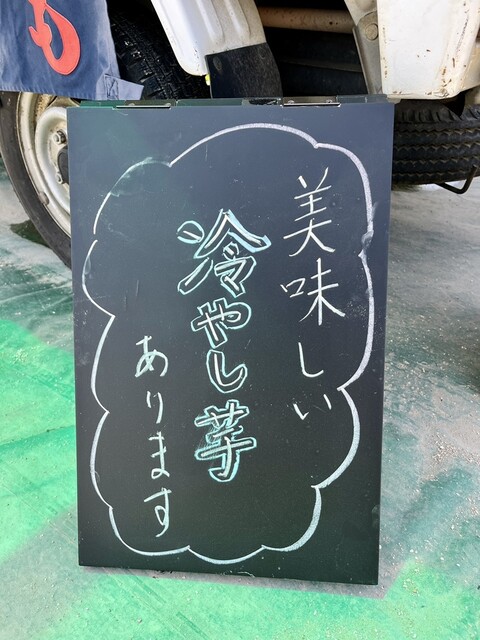 美味しい
冷やし芋
あります
も